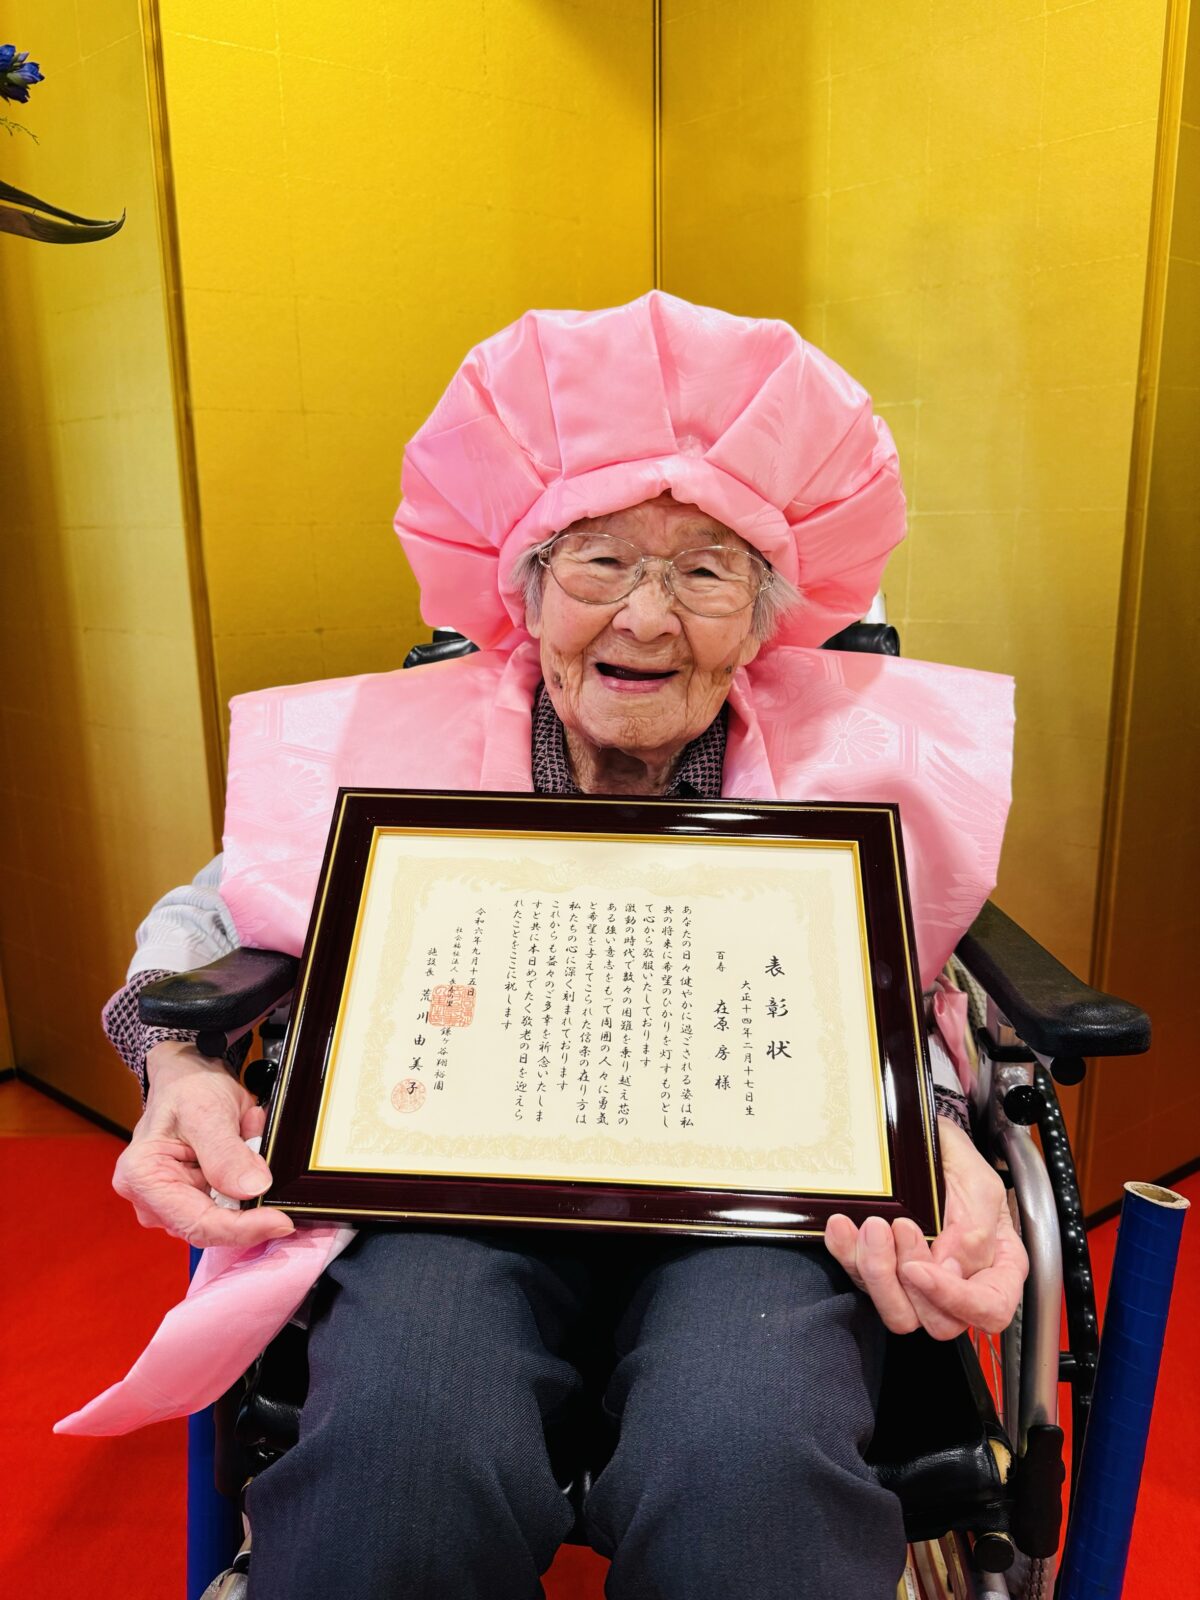 表彰状
大正十四年二月十七日生
百寿 在原 房 様
あなたの日々健やかに過ごされる姿は私
共の将来に希望のひかりを灯すものとし
て心から敬服いたしております
激動の時代で数々の困難を乗り越え芯の
ある強い意志をもって周囲の人々に勇気
と希望を与えてこられた信条の在り方は
私たちの心に深く刻まれております
これからも益々のご多幸を祈念いたしま
すと共に本日めでたく敬老の日を迎えら
れたことをここに祝します
令和六年九月十五日
社会福祉法人 長寿の里 鎌ヶ谷翔裕園
施設長 荒川由美子